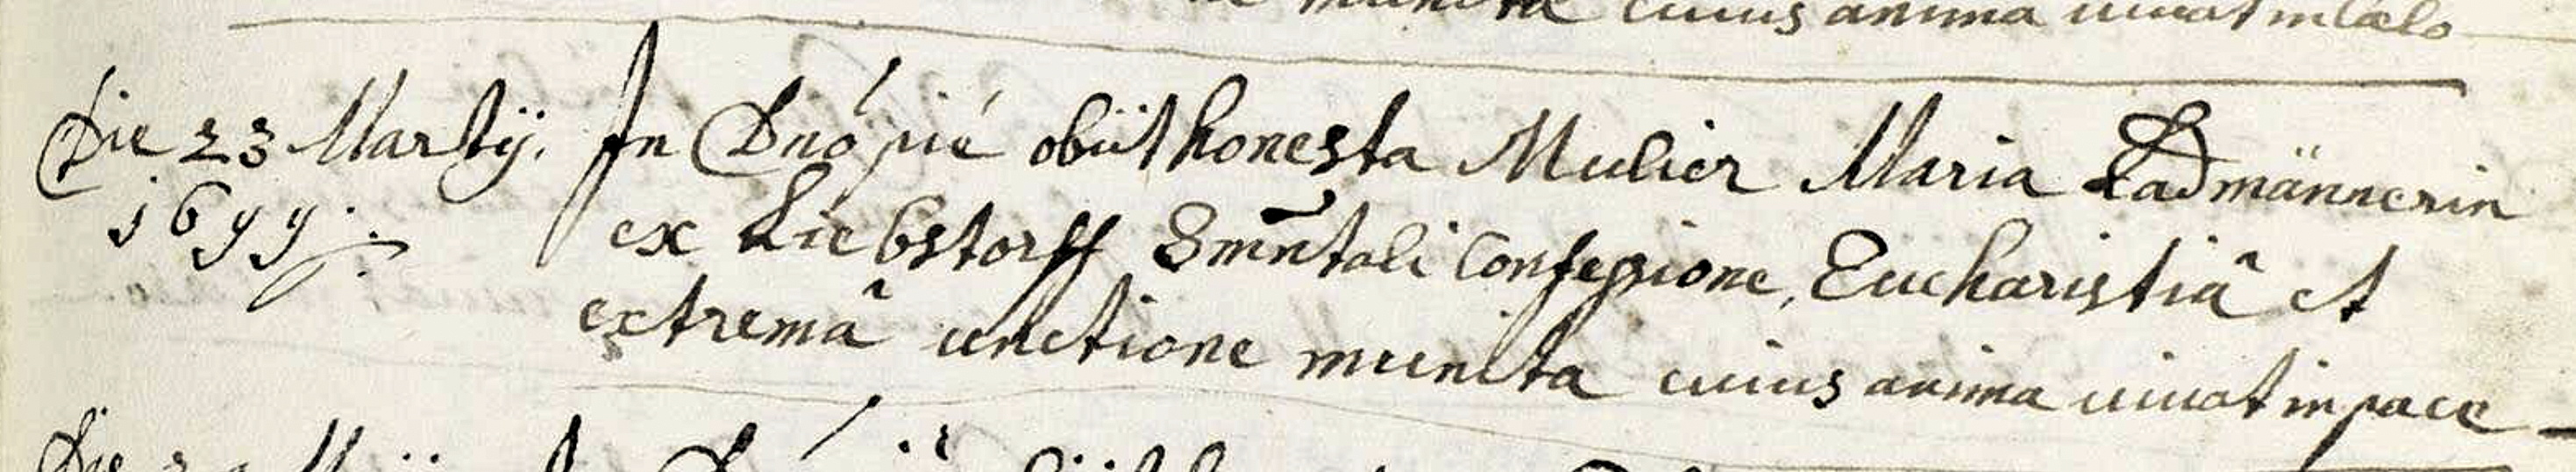 munita cuius anima uiuat in Cælo
Die 23 Martÿ. In Dnó pié obiit honesta Mulier Maria Ladmännerin
1699. ex Liebstorff Smñtali Confessione, Eucharistiâ et
extremâ unctione munita cuius anima uiuat in pace
Die